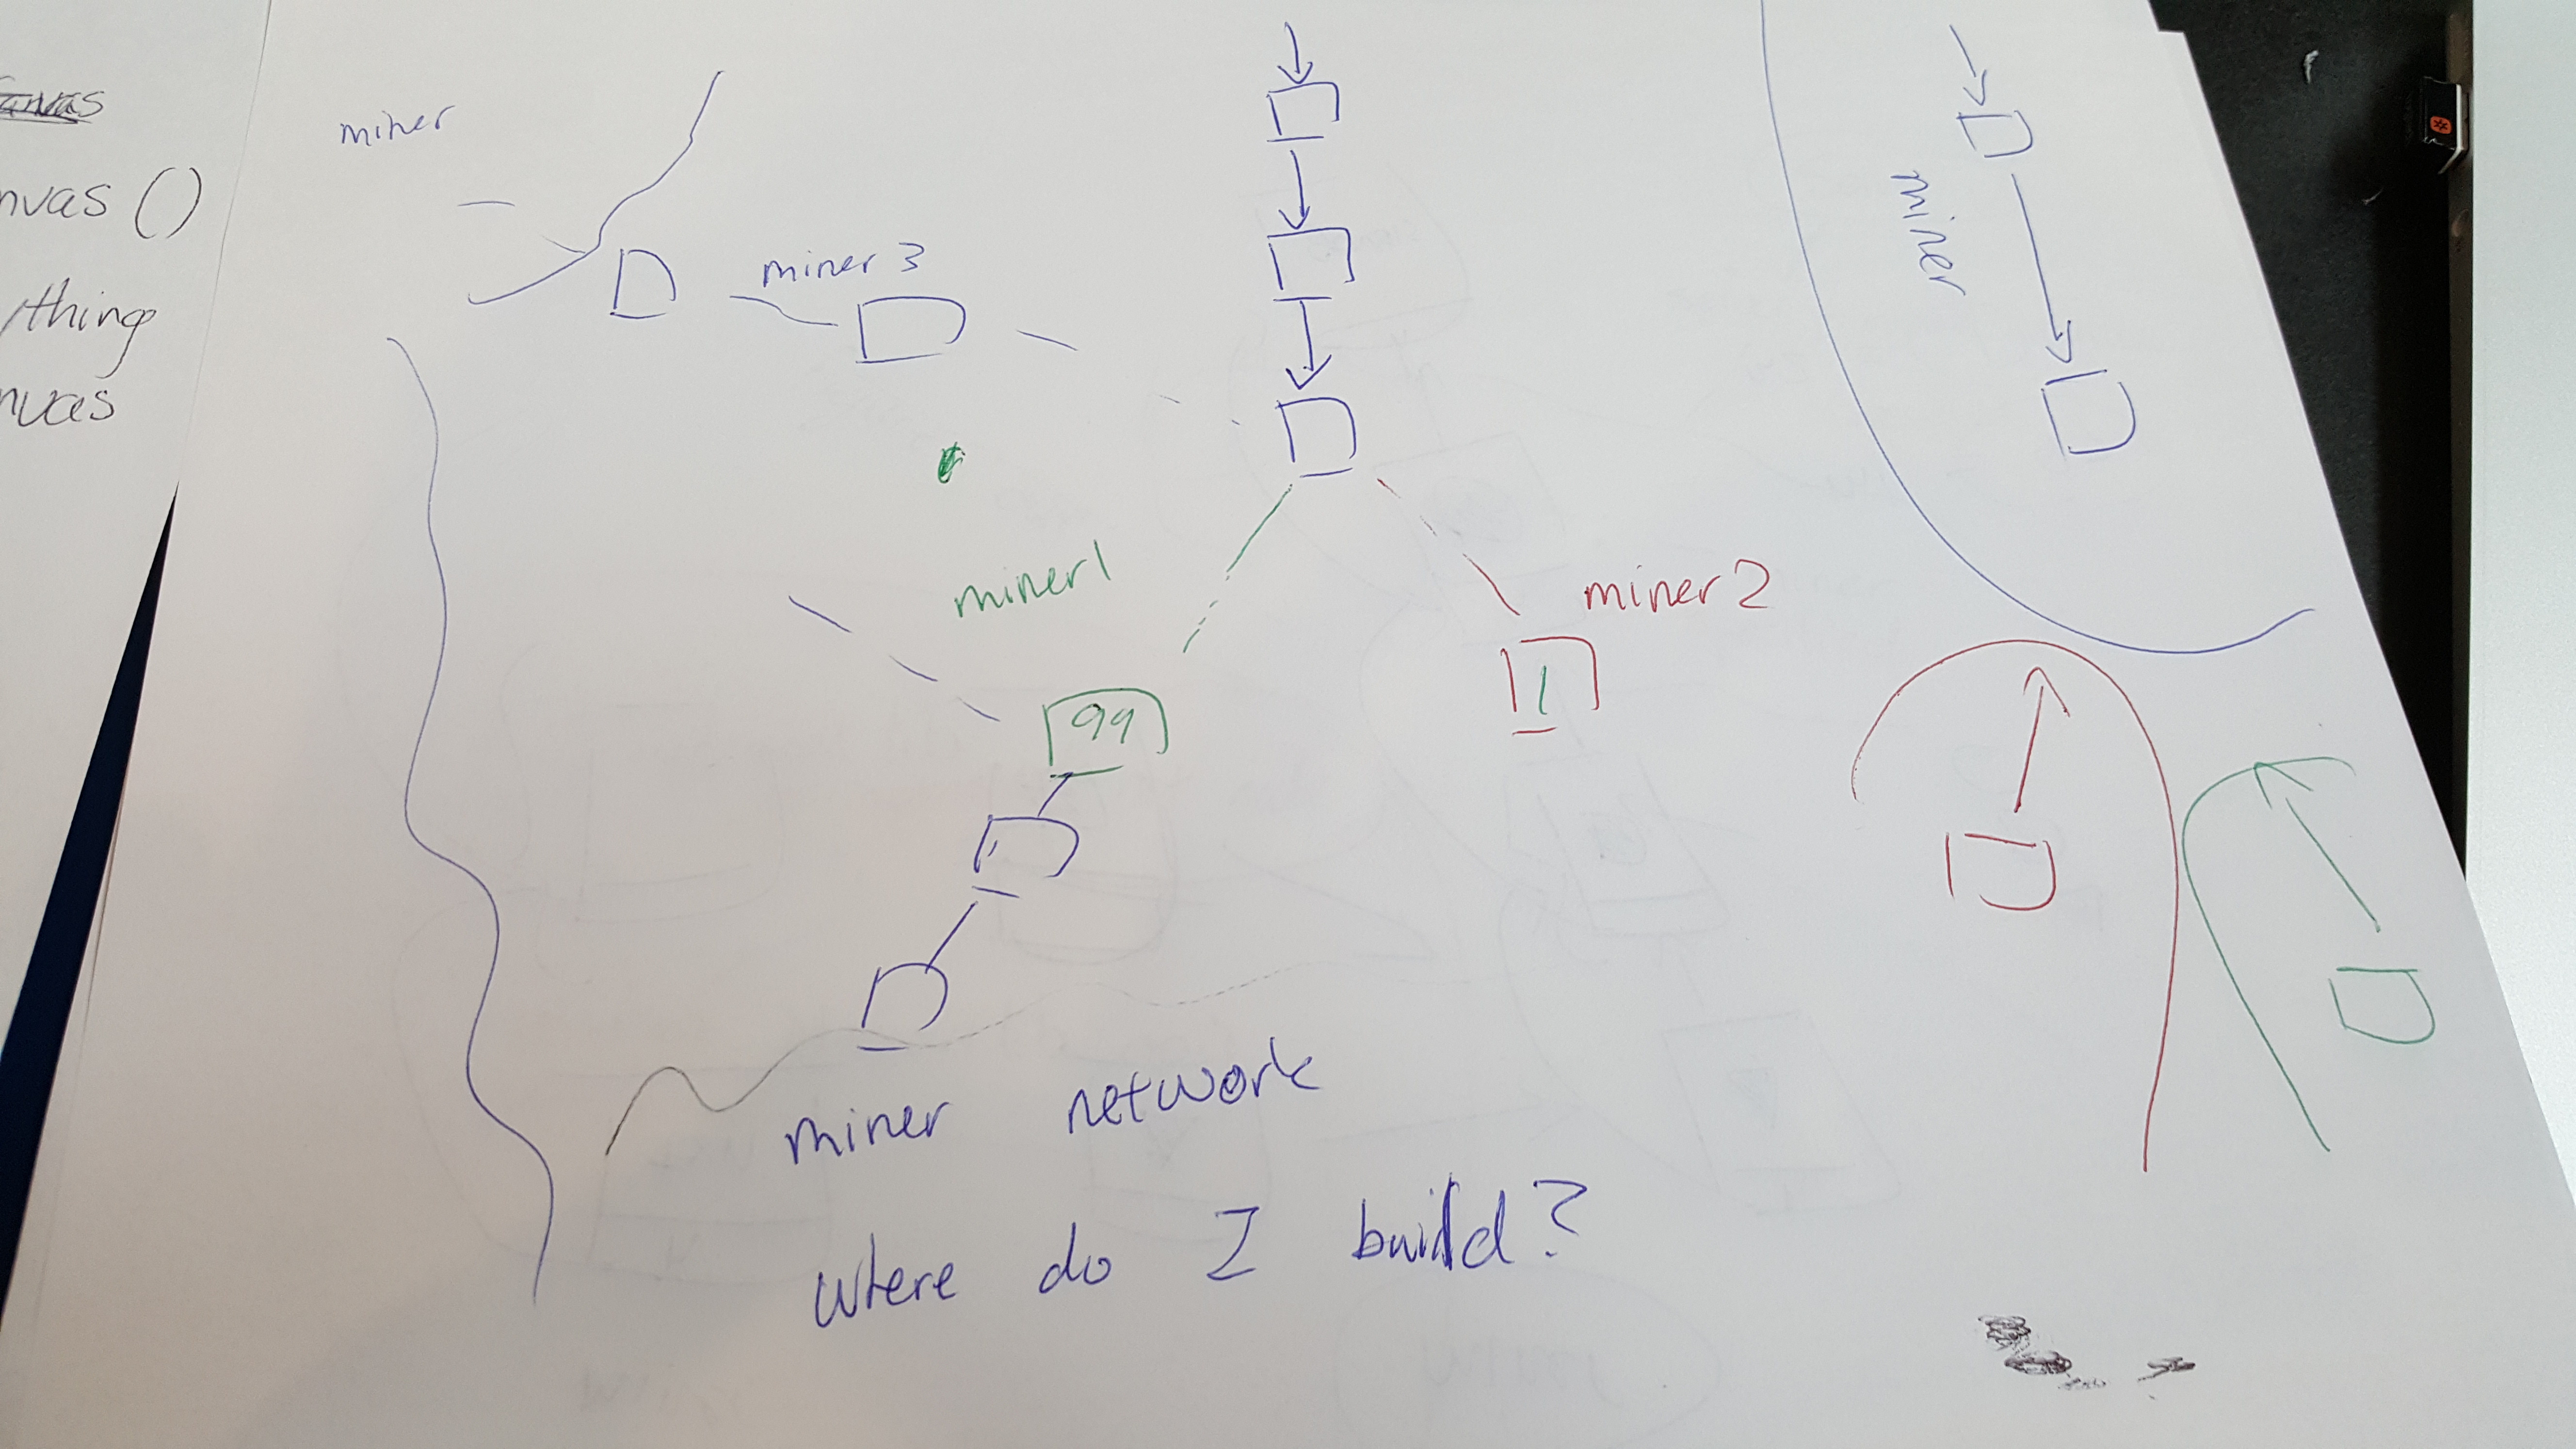 miner
nvas ()
thing
nvas
miner 3
miner
miner 1
miner 2
99
1
miner network
where do I build?